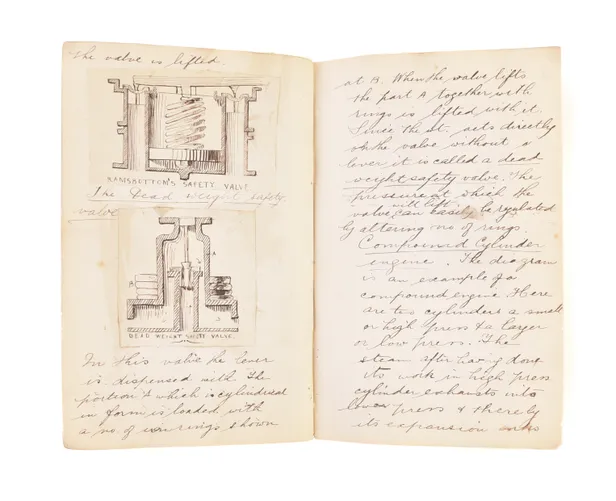 The valve is lifted.
RAMSBOTTOM'S SAFETY VALVE
The Dead weight safety
valve
A
B
DEAD WEIGHT SAFETY VALVE.
In this valve the lever
is dispensed with. The
portion A which is cylindrical
in form is loaded with
a no of iron rings shown
at B. When the valve lifts
the part A together with
rings is lifted with it.
Since the st. acts directly
on the valve without a
lever it is called a dead
weight safety valve. The
pressure at which the
will lift
valve can easily be regulated
by altering no of rings.
Compound Cylinder
engine. The diagram
is an example of a
compound engine. Here
are two cylinders a small
or high press & a larger
or low press. The
steam after having done
its work in high press
cylinder exhausts into
lower press & thereby
its expansion